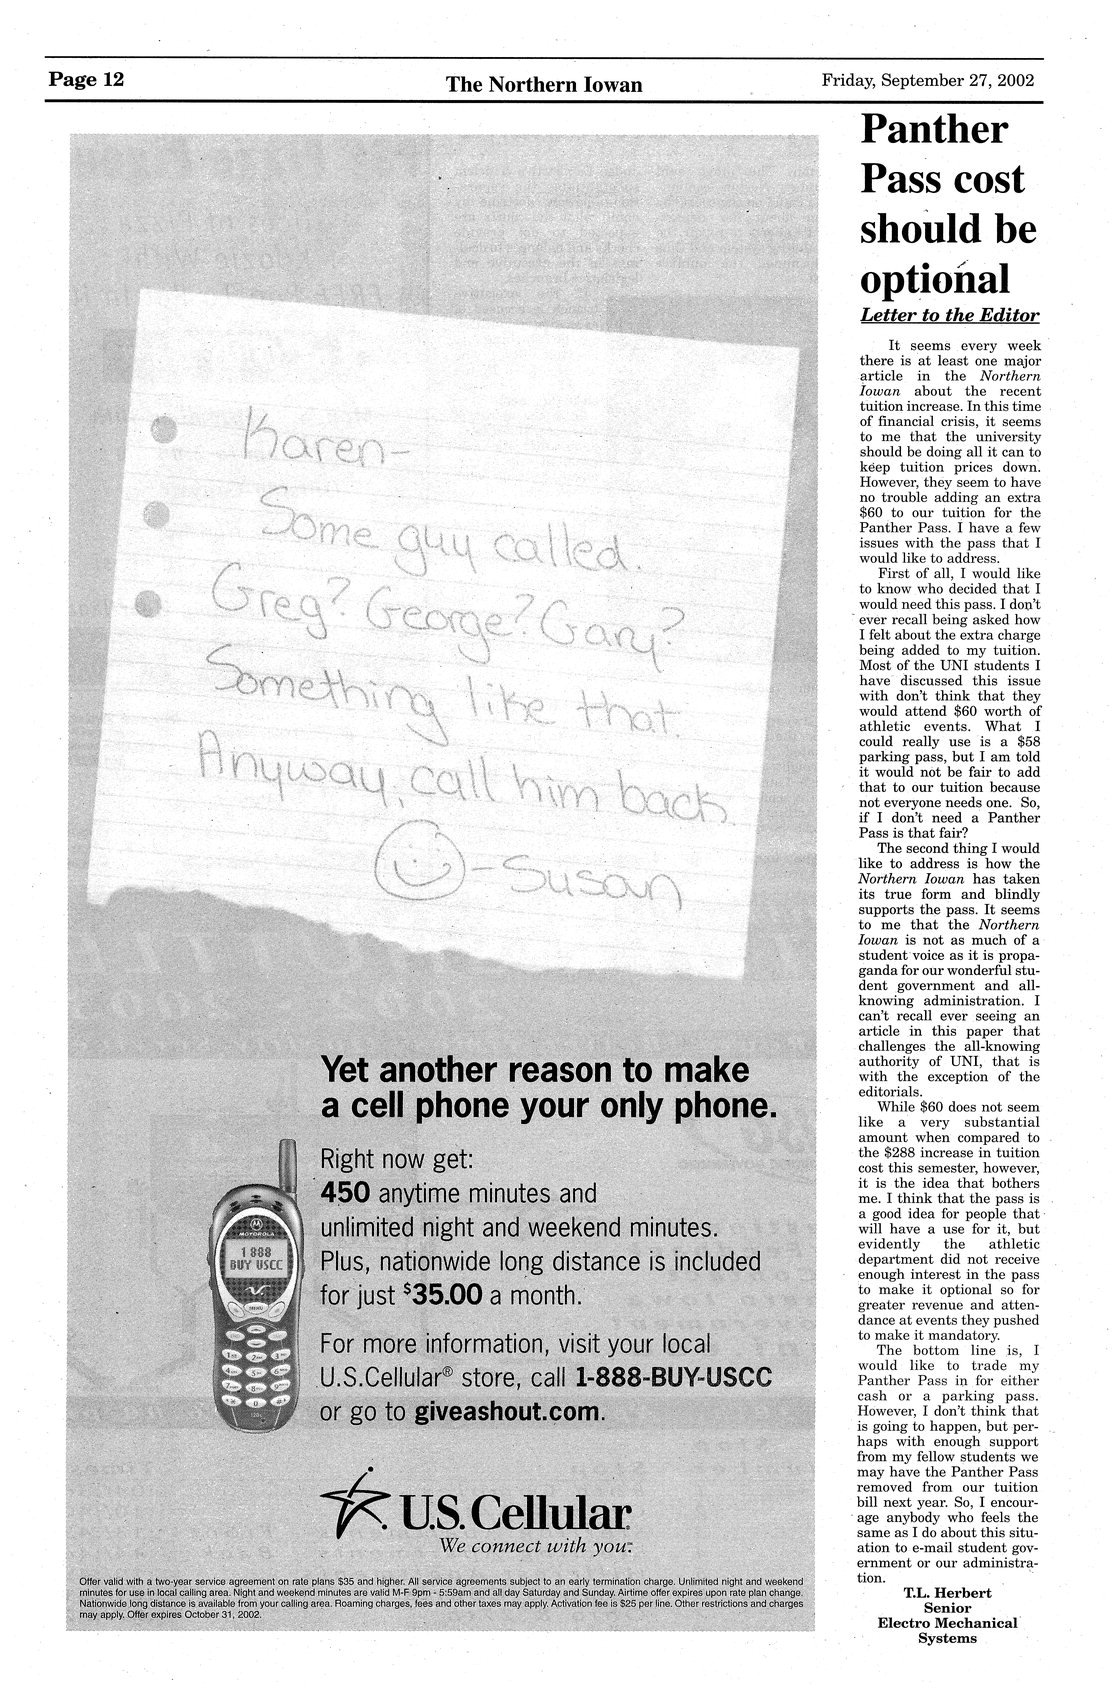 Page 12
The Northern Iowan
Friday, September 27, 2002
Karen-
Some guy called.
Greg? George? Gary?
Something like that.
Anyway, call him back.
-Susan
Yet another reason to make
a cell phone your only phone.
Right now get:
450 anytime minutes and
unlimited night and weekend minutes.
Plus, nationwide long distance is included
for just $35.00 a month.
For more information, visit your local
U.S.Cellular® store, call 1-888-BUY-USCC
or go to giveashout.com.
MOTOROLA
1 888
BUY USCC
MENU
U.S. Cellular®
We connect with you.™
Offer valid with a two-year service agreement on rate plans $35 and higher. All service agreements subject to an early termination charge. Unlimited night and weekend
minutes for use in local calling area. Night and weekend minutes are valid M-F 9pm - 5:59am and all day Saturday and Sunday. Airtime offer expires upon rate plan change.
Nationwide long distance is available from your calling area. Roaming charges, fees and other taxes may apply. Activation fee is $25 per line. Other restrictions and charges
may apply. Offer expires October 31, 2002.
Panther
Pass cost
should be
optional
Letter to the Editor
It seems every week
there is at least one major
article in the Northern
Iowan about the recent
tuition increase. In this time
of financial crisis, it seems
to me that the university
should be doing all it can to
keep tuition prices down.
However, they seem to have
no trouble adding an extra
$60 to our tuition for the
Panther Pass. I have a few
issues with the pass that I
would like to address.
First of all, I would like
to know who decided that I
would need this pass. I don't
ever recall being asked how
I felt about the extra charge
being added to my tuition.
Most of the UNI students I
have discussed this issue
with don't think that they
would attend $60 worth of
athletic events. What I
could really use is a $58
parking pass, but I am told
it would not be fair to add
that to our tuition because
not everyone needs one. So,
if I don't need a Panther
Pass is that fair?
The second thing I would
like to address is how the
Northern Iowan has taken
its true form and blindly
supports the pass. It seems
to me that the Northern
Iowan is not as much of a
student voice as it is propa-
ganda for our wonderful stu-
dent government and all-
knowing administration. I
can't recall ever seeing an
article in this paper that
challenges the all-knowing
authority of UNI, that is
with the exception of the
editorials.
While $60 does not seem
like a very substantial
amount when compared to
the $288 increase in tuition
cost this semester, however,
it is the idea that bothers
me. I think that the pass is
a good idea for people that
will have a use for it, but
evidently the athletic
department did not receive
enough interest in the pass
to make it optional so for
greater revenue and atten-
dance at events they pushed
to make it mandatory.
The bottom line is, I
would like to trade my
Panther Pass in for either
cash or a parking pass.
However, I don't think that
is going to happen, but per-
haps with enough support
from my fellow students we
may have the Panther Pass
removed from our tuition
bill next year. So, I encour-
age anybody who feels the
same as I do about this situ-
ation to e-mail student gov-
ernment or our administra-
tion.
T.L. Herbert
Senior
Electro Mechanical
Systems